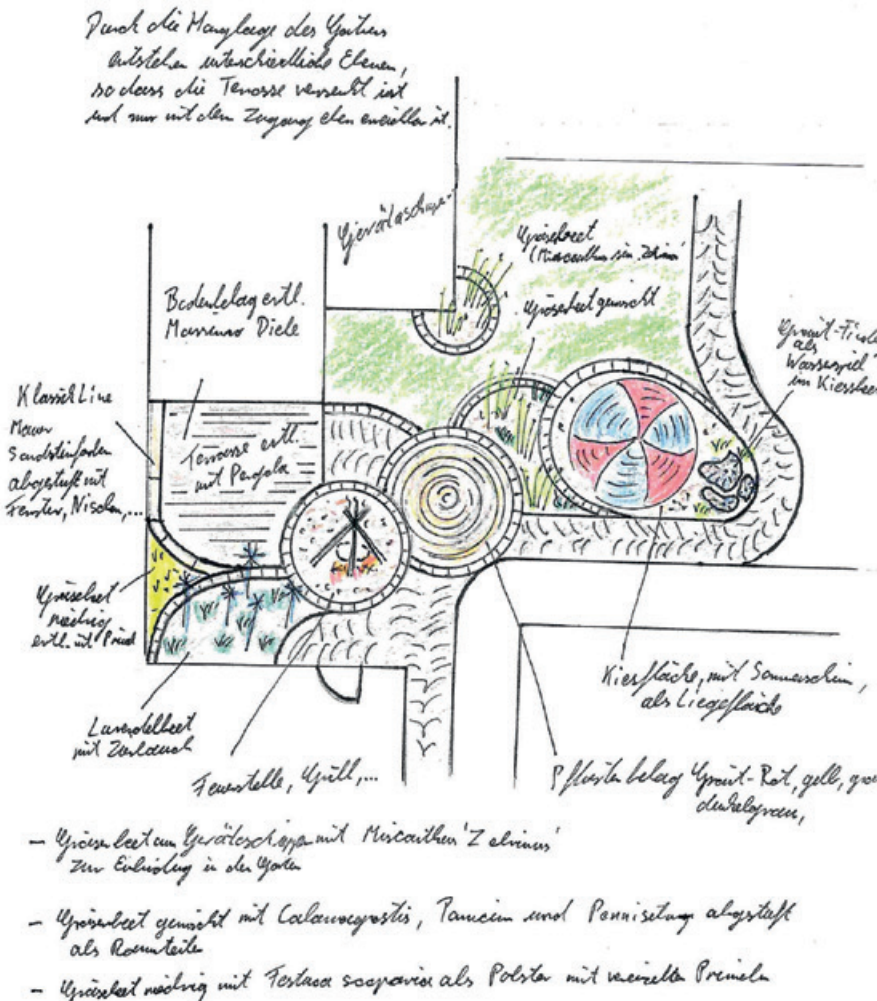 Durch die Hanglage des Gartens
entstehen unterschiedliche Ebenen,
so dass die Terrasse versenkt ist
und nur mit dem Zugang eben erreichbar ist.
Geräteschuppen
Gräserbeet
(Miscanthus sin. Zebrinus
Bodenbelag evtl.
Massivo Diele
Gräserbeet gemischt
Granit-Findl
als
Wasserspiel
im Kiesbeet
Klassik Line
Mauer
Sandsteinfarben
abgestuft mit
Fenster, Nischen,...
Terrasse evtl.
mit Pergola
Gräserbeet
niedrig
evtl. mit Primel
Kiesfläche, mit Sonnenschirm,
als Liegefläche
Lavendelbeet
mit Zierlauch
Feuerstelle, Grill,...
Pflasterbelag Granit-Rot, gelb, grau
dunkelgrau,
- Gräserbeet am Geräteschuppen mit Miscanthus 'Zebrinus'
zur Einbindung in den Garten
- Gräserbeet gemischt mit Calamagrostis, Panicum und Pennisetum abgestuft
als Raumteiler
- Gräserbeet niedrig mit Festuca scoparia als Polster mit vereinzelten Primeln